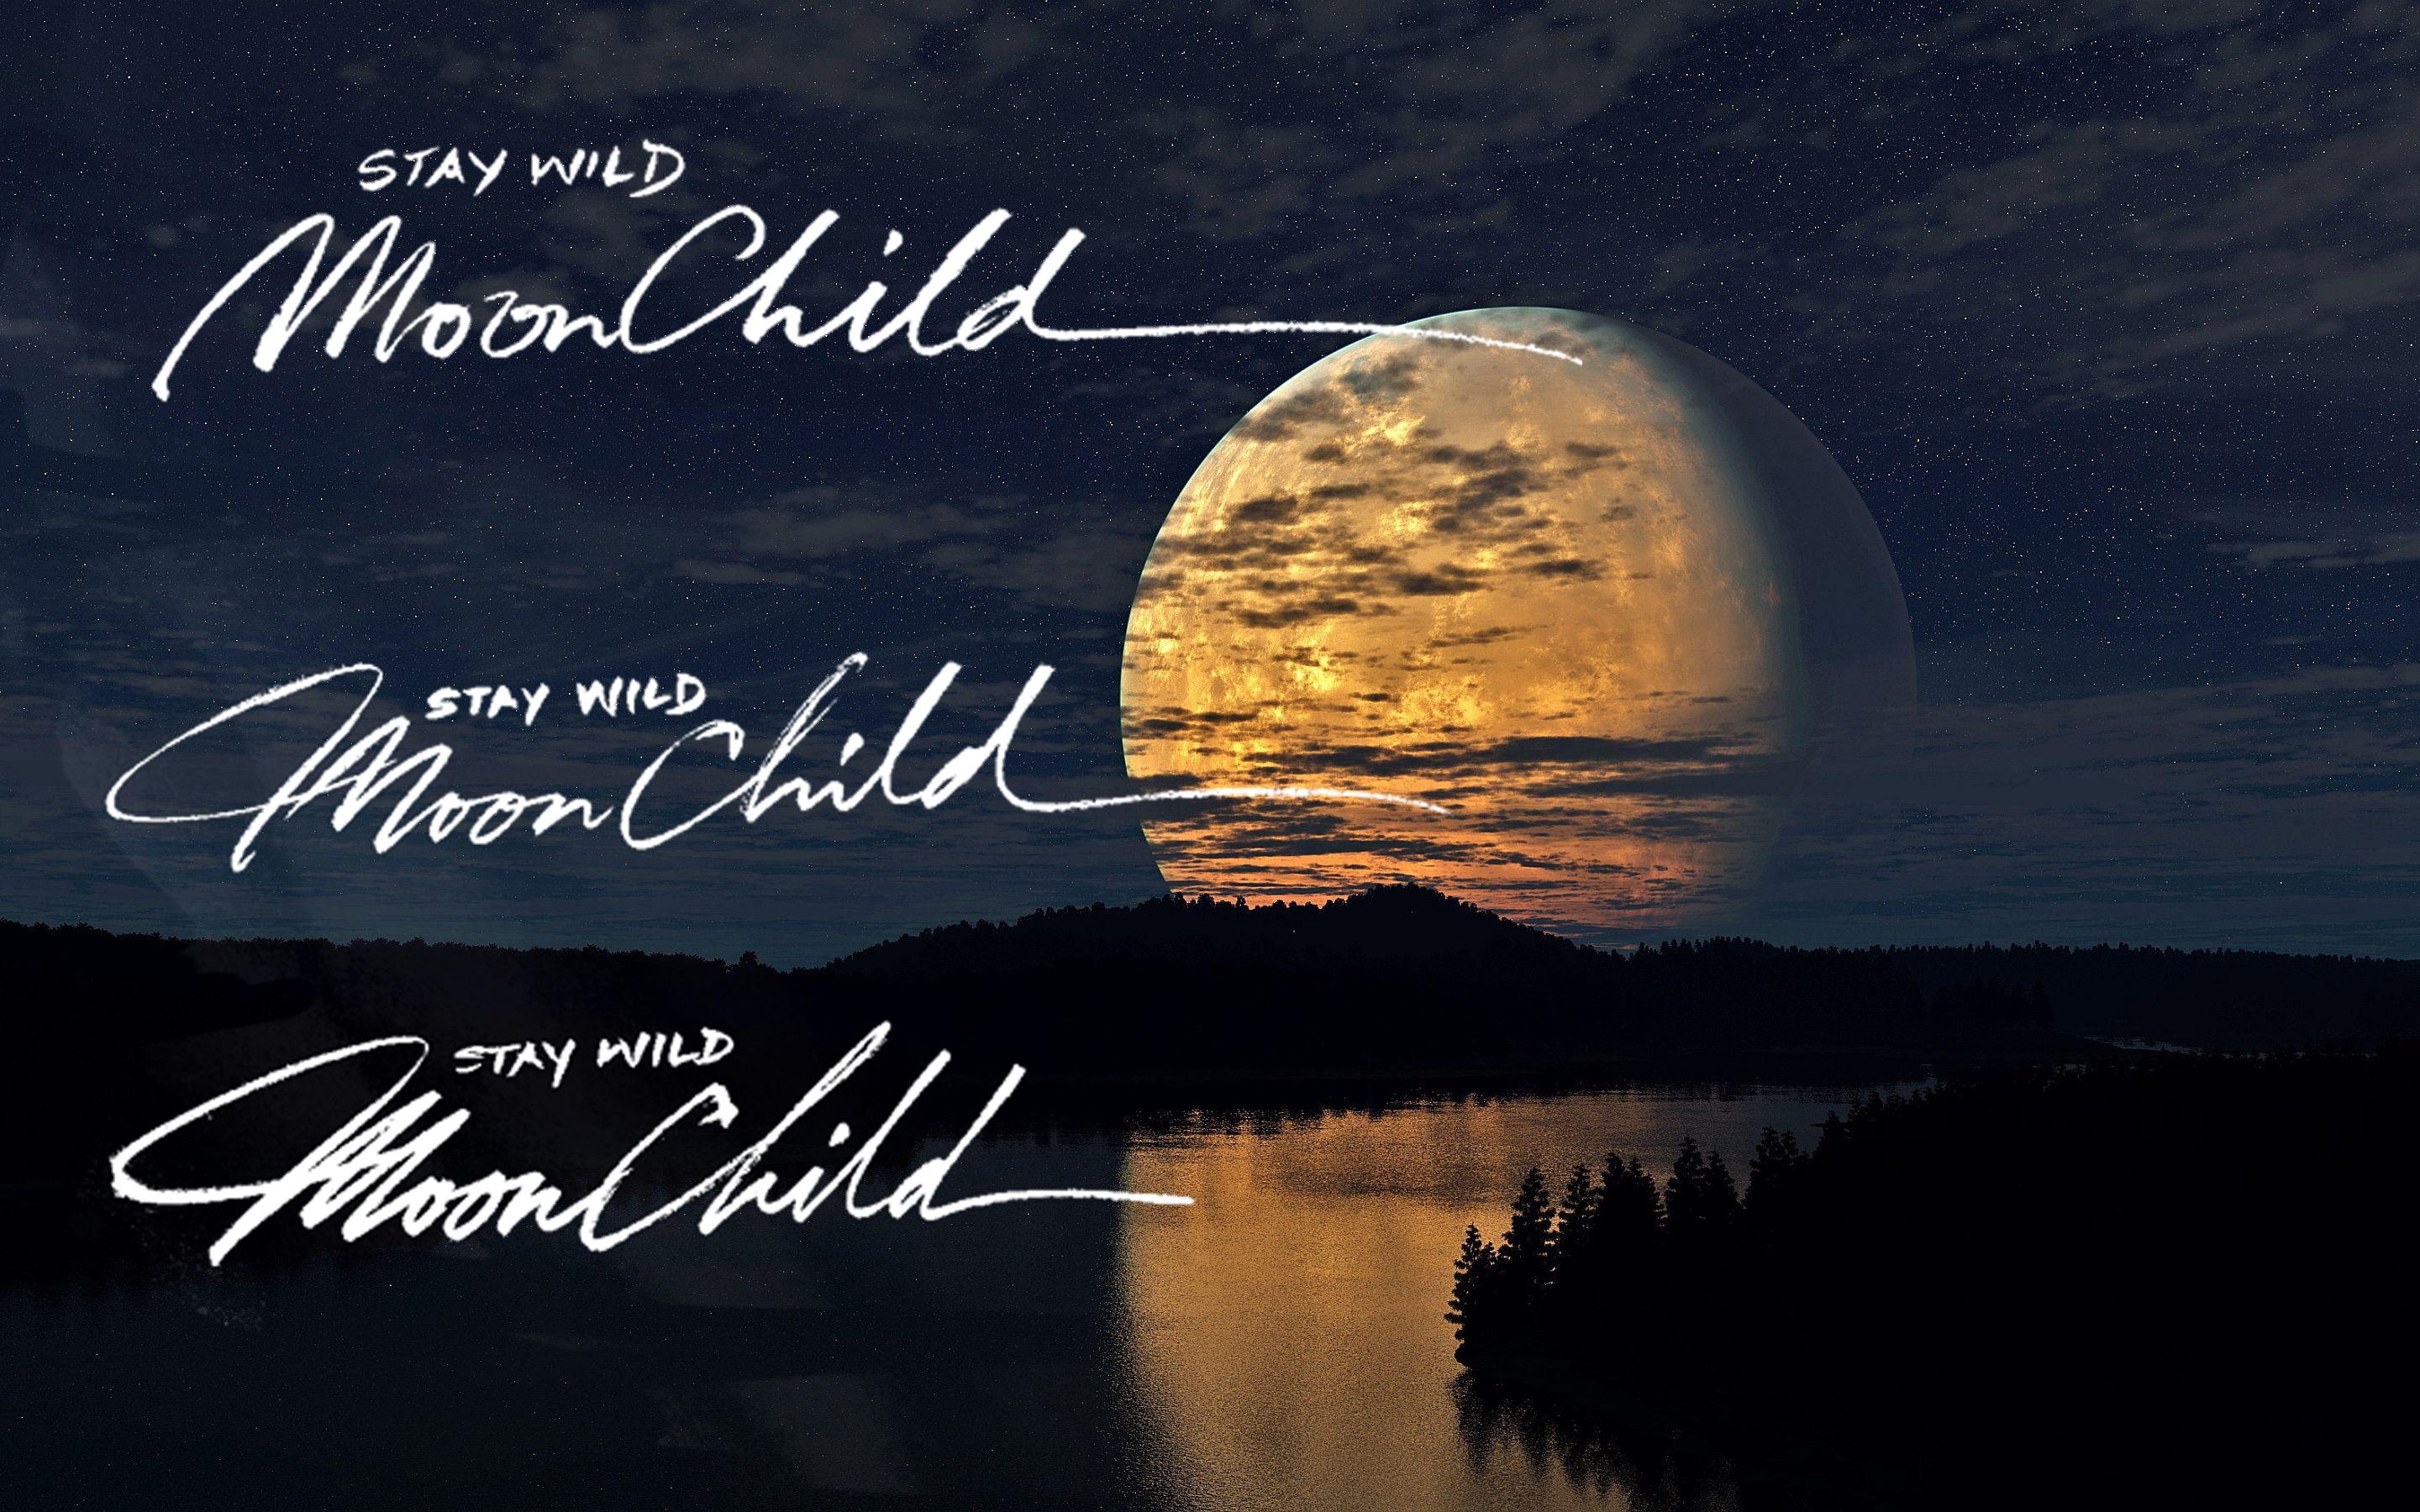 STAY WILD
MoonChild
STAY WILD
Moon Child
STAY WILD
MoonChild